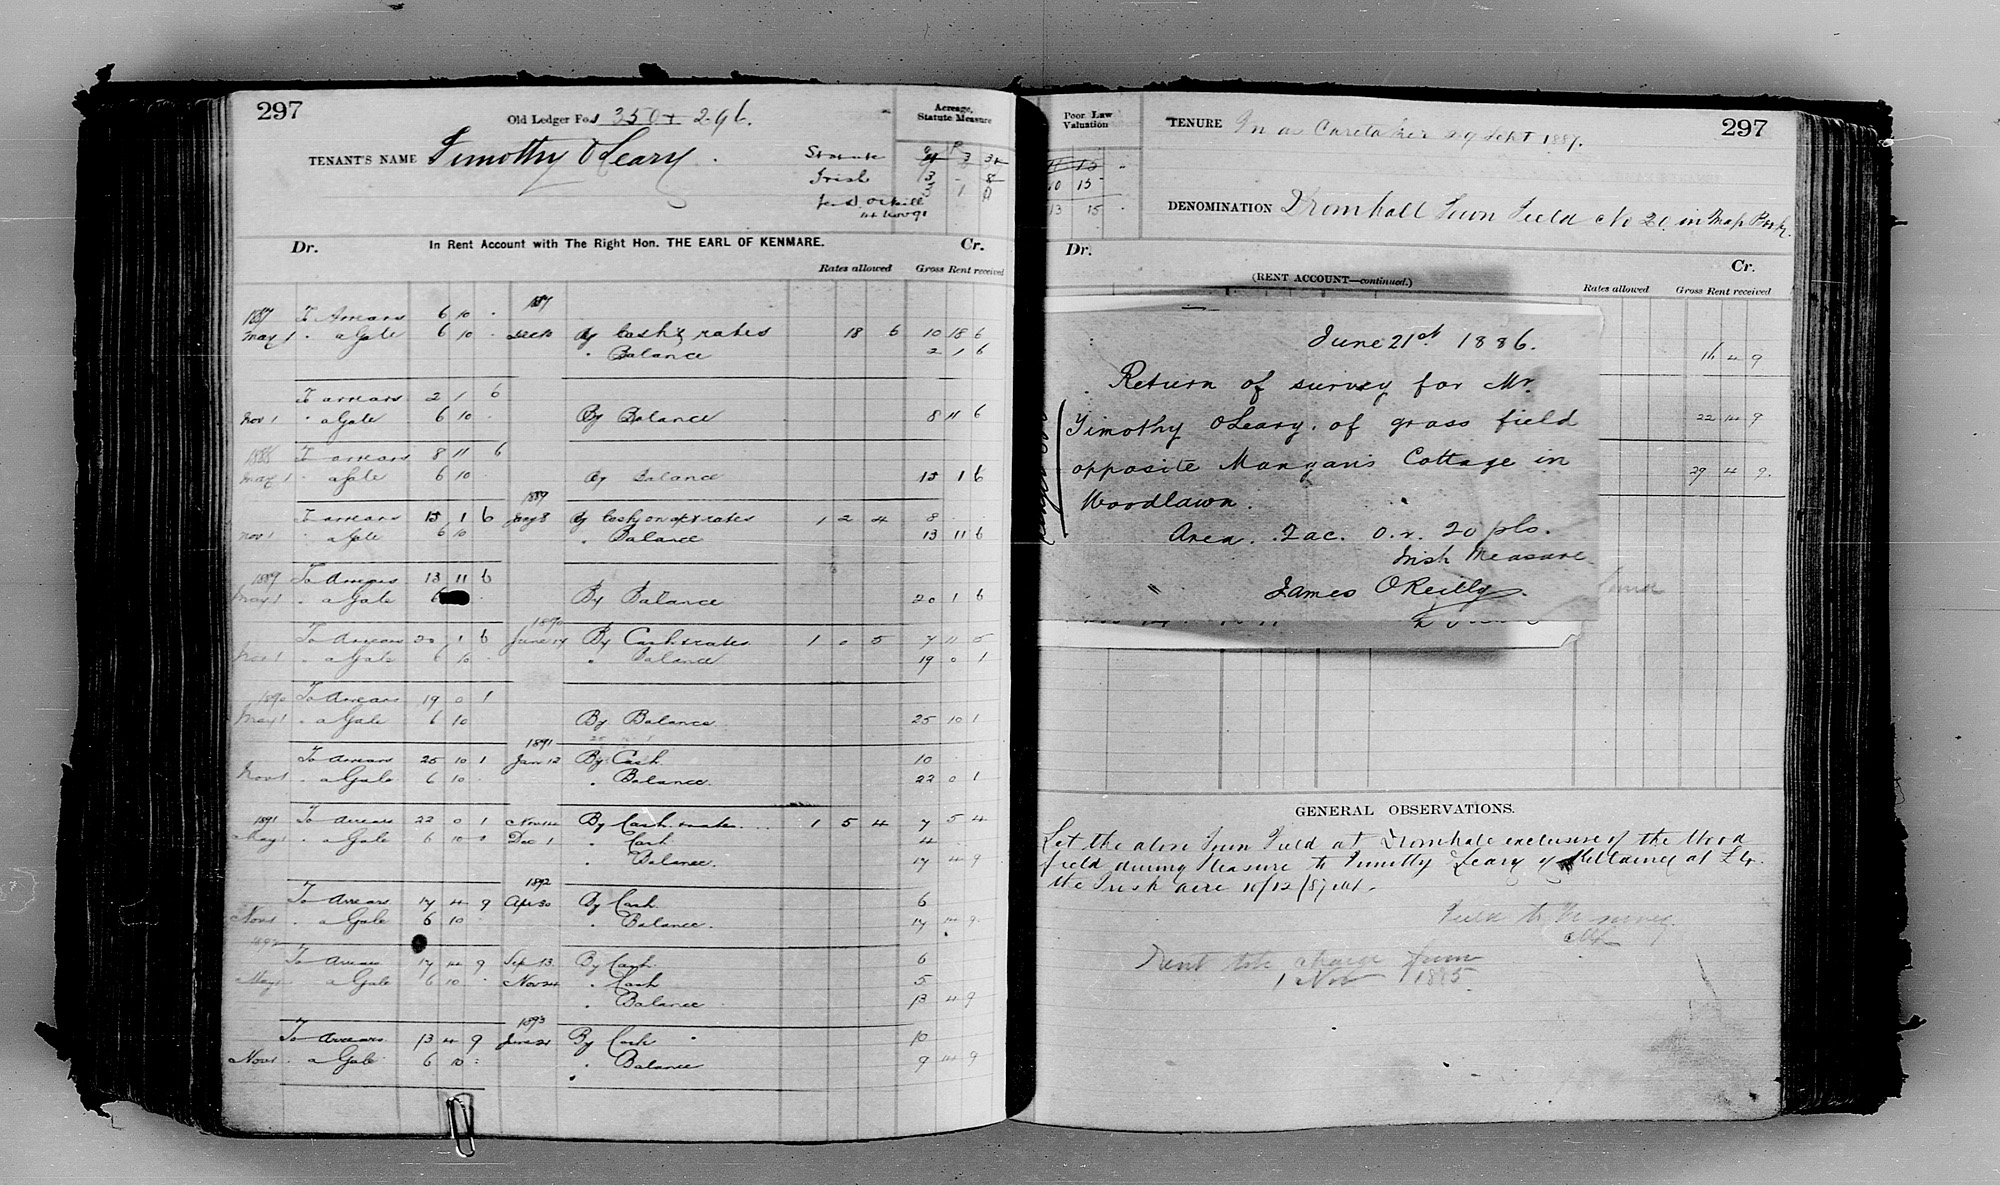 297
Old Ledger Fo. 350 + 296.
Acreage, Statute Measure
TENANT'S NAME Timothy O'Leary.
Statute 4 3 34
Irish 3 - 8
3 1 0
14 Nov 91
Dr. In Rent Account with The Right Hon. THE EARL OF KENMARE. Cr.
Rates allowed Gross Rent received
1887 To Arrears 6 10 . 1887
May 1 " a Gale 6 10 . Dec 10 By Cash & rates 18 6 10 18 6
" Balance 2 1 6
To arrears 2 1 6
Nov 1 " a Gale 6 10 . By Balance 8 11 6
1888 To arrears 8 11 6
May 1 " a Gale 6 10 By Balance 15 1 6
1889
To arrears 15 1 6 Jany 8 By Cash on a/c & rates 1 2 4 8
Nov 1 " a Gale 6 10 " Balance 13 11 6
1889 To Arrears 13 11 6
May 1 " a Gale 6 By Balance 20 1 6
1890
To Arrears 20 1 6 June 14 By Cash & rates 1 0 5 7 11 5
Nov 1 " a Gale 6 10 . " Balance 19 0 1
1890 To Arrears 19 0 1
May 1 " a Gale 6 10 By Balance 25 10 1
1891
To Arrears 25 10 1 Jan 12 By Cash 10
Nov 1 " a Gale 6 10 . " Balance 22 0 1
1891 To Arrears 22 0 1 Nov 14 By Cash & rates 1 5 4 7 5 4
May 1 " a Gale 6 10 0 Dec 1 " Cash 4
" Balance. 17 4 9
1892
To Arrears 17 4 9 Apr 30 By Cash 6
Nov 1 " a Gale 6 10 " Balance. 17 14 9
1892
To Arrears 17 14 9 Sep 13 By Cash 6
May 1 " a Gale 6 10 . Nov 24 " Cash 5
" Balance 13 4 9
1893
To Arrears 13 4 9 June 21 By Cash 10
Nov 1 " a Gale 6 10 : " Balance 9 14 9
Poor Law Valuation
10 15
13 15
TENURE In as Caretaker 29 Sept 1887.
297
DENOMINATION Dromhall Town Field No 20 in Map Book.
Dr. Cr.
(RENT ACCOUNT—continued.)
Rates allowed Gross Rent received
16 4 9
22 14 9
29 4 9
June 21st 1886.
Return of survey for Mr.
Timothy O'Leary. of grass field
opposite Mangan's Cottage in
Woodlawn.
Area. 2 ac. 0. r. 20 pls.
Irish Measure
James O'Reilly.
GENERAL OBSERVATIONS.
Let the above Town Field at Dromhale exclusive of the Wood
field during pleasure to Timothy Leary of Killarney at £4.
the Irish acre 10/12/85
Rent to charge from
1 Nov 1885.